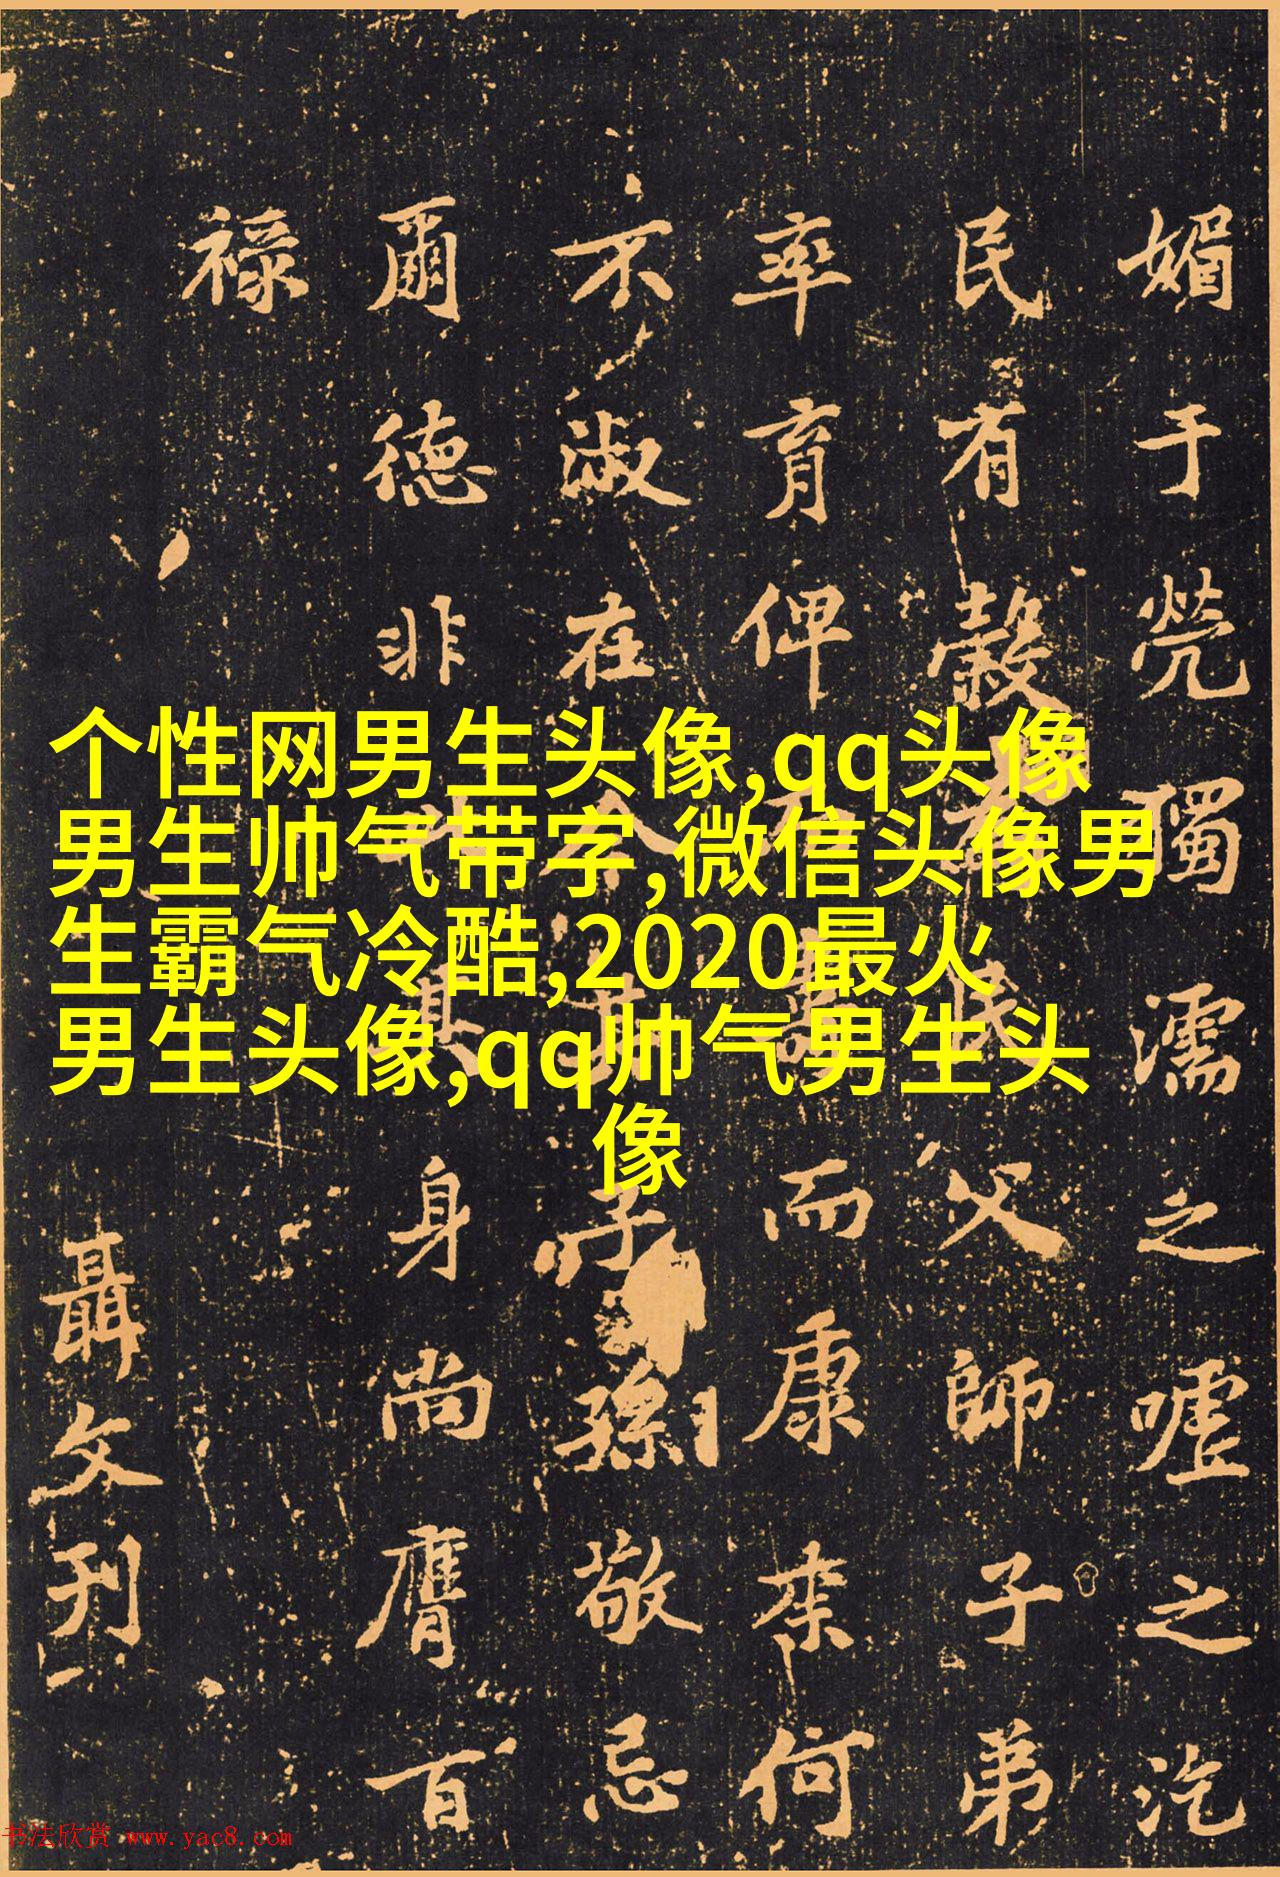 媚于煢獨濡之嘘之汔
民有穀民父師子弟
率育俾壽而康来何
不淑在子孫敬忌
爾德非其身尚膺百
祿
聶文刊
个性网男生头像,qq头像
男生帅气带字,微信头像男
生霸气冷酷,2020最火
男生头像,qq帅气男生头
像
书法欣赏 www.yac8.com